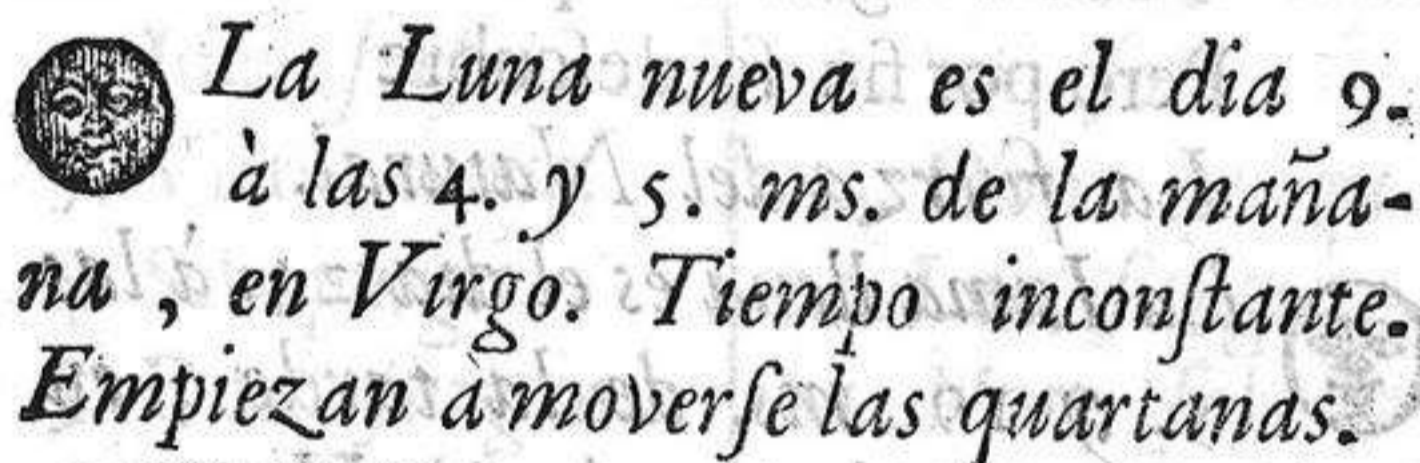 La Luna nueva es el dia 9.
à las 4. y 5. ms. de la maña-
na, en Virgo. Tiempo inconſtante.
Empiezan à moverſe las quartanas.